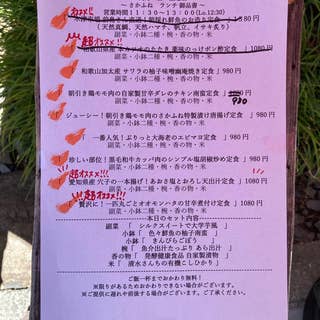 ～ さかふね ランチ 御品書 ～
営業時間 11:30～13:00(L.o 12:30)
オススメ!!
(天然真鯛、天然ハマチ、帆立、イサキ炙り)
副菜・小鉢二種・椀・香の物・米
超オススメ!!!
薬味のっけポン酢定食 」1080円
副菜・小鉢二種・椀・香の物・米
和歌山加太産 サワラの柚子味噌幽庵焼き定食 」980円
副菜・小鉢二種・椀・香の物・米
朝引き鶏モモ肉の自家製甘辛ダレのチキン南蛮定食 」 930
副菜・小鉢二種・椀・香の物・米
「 ジューシー！朝引き鶏モモ肉のさかふね特製漬け唐揚げ定食 」980円
副菜・小鉢二種・椀・香の物・米
「 一番人気！ぷりっと大海老のエビマヨ定食 」980円
副菜・小鉢二種・椀・香の物・米
「 珍しい部位！黒毛和牛カッパ肉のシンプル塩胡椒炒め定食 」980円
副菜・小鉢二種・椀・香の物・米
超オススメ!!!
「 愛知県産 穴子の一本揚げ！あおさ塩とおろし天出汁定食 」1080円
副菜・小鉢二種・椀・香の物・米
超オススメ!!!
「 贅沢に！一匹丸ごとオオモンハタの甘辛煮付け定食 」1080円
副菜・小鉢二種・椀・香の物・米
---本日のセット内容---
副菜 「 シルクスイートで大学芋風 」
小鉢「 色々鮮魚の柚子南蛮 」
小鉢「 きんぴらごぼう 」
椀「 魚介出汁たっぷり あら出汁 」
香の物「 発酵健康食品 自家製漬物 」
米「 清水さんちの有機こしひかり 」
ご飯一杯までおかわり無料！
※限りがあるためおかわりできない場合がございます。
※混雑時に遅れや前後する場合がございます、ご了承ください。